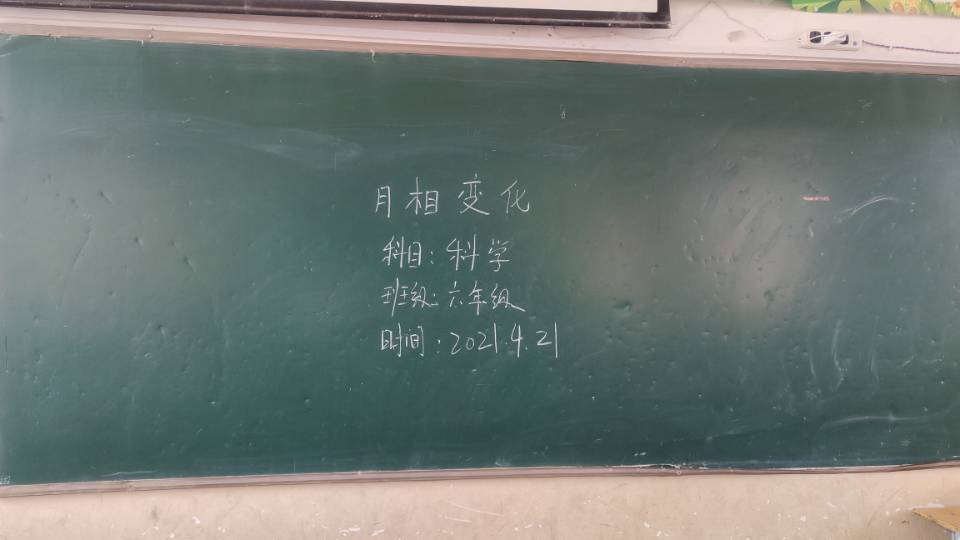 月相变化
科目：科学
班级：六年级
时间：2021.4.21